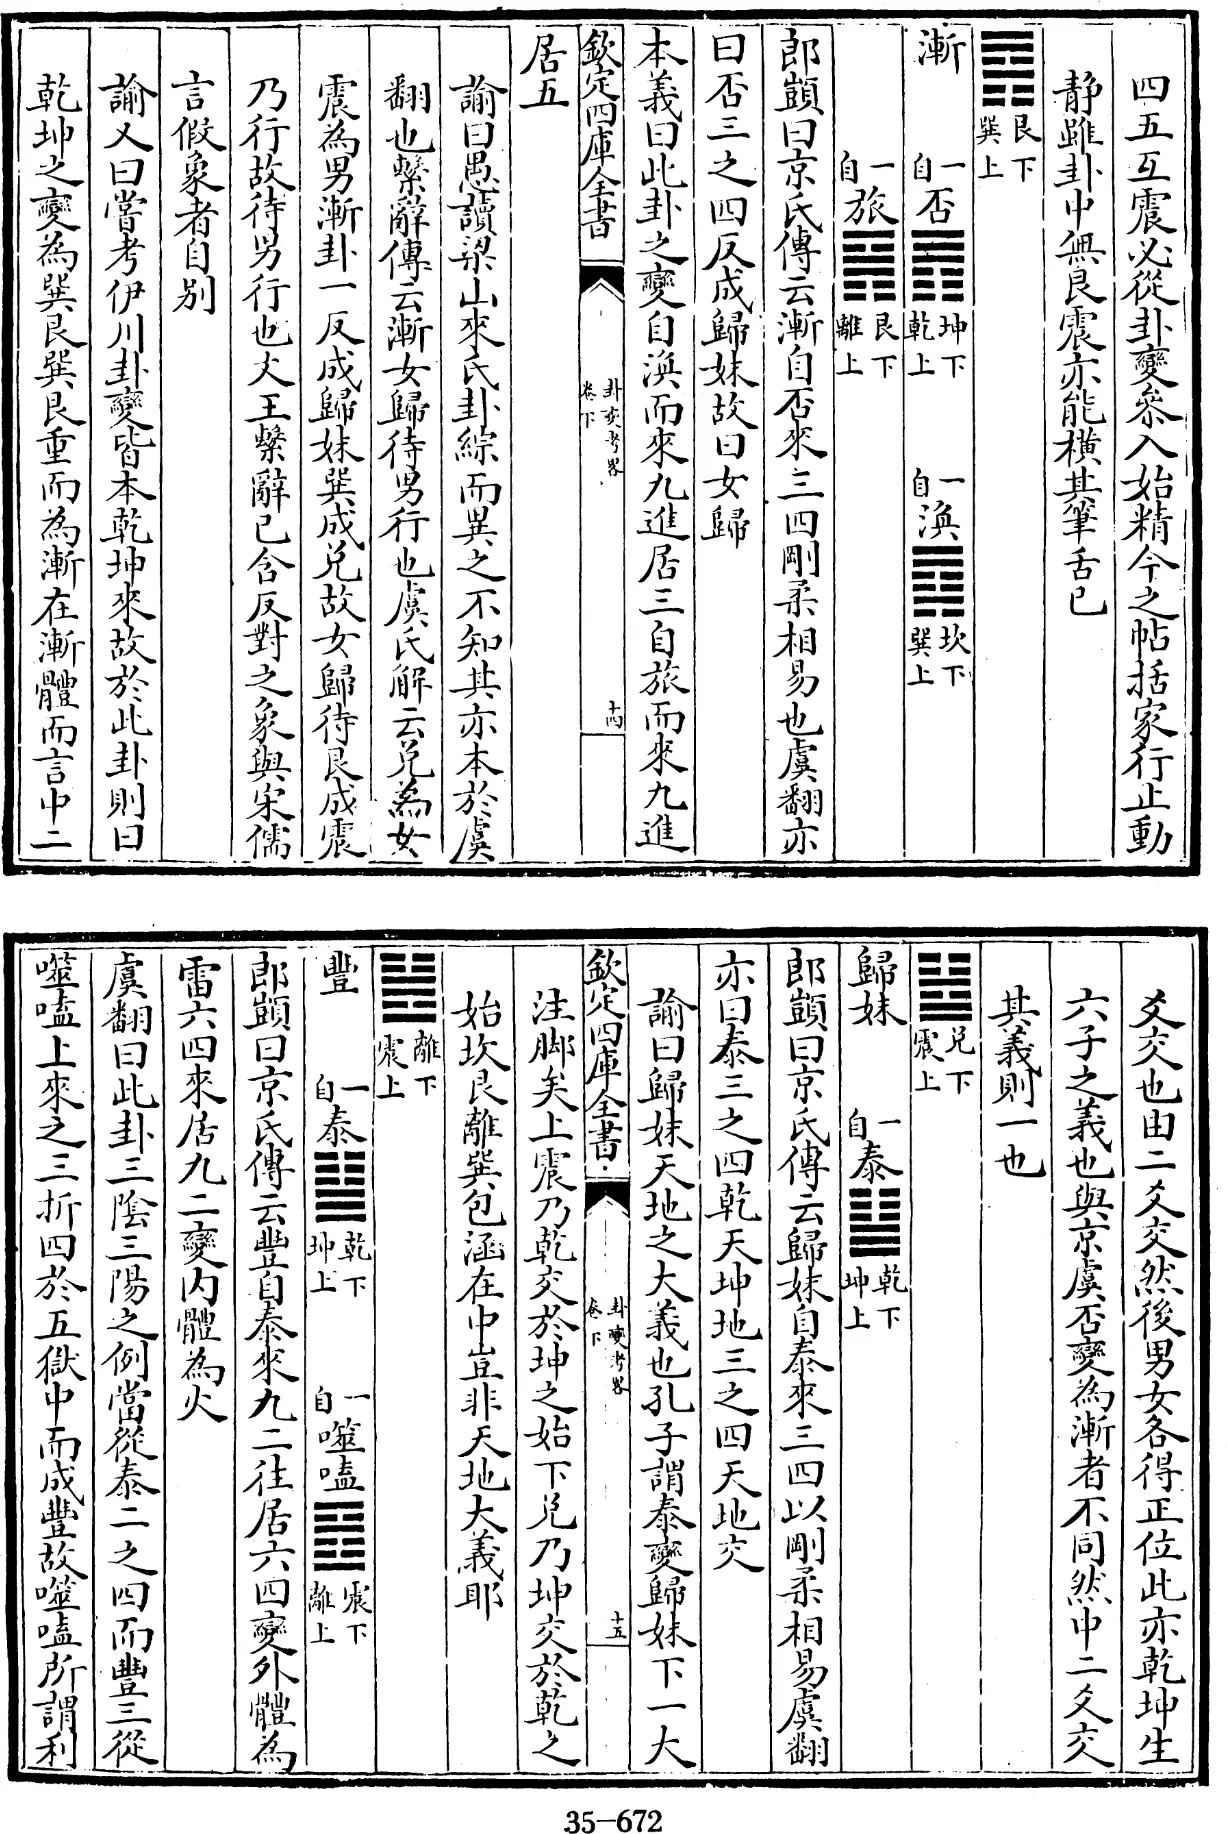 四五互震必從卦變叅入始精今之帖括家行止動
静雖卦中無艮震亦能横其筆舌已
䷴艮下巽上
漸 一自否䷋坤下乾上 一自渙䷺坎下巽上
一自旅䷷艮下離上
郎顗曰京氏傳云漸自否來三四剛柔相易也虞翻亦
曰否三之四反成歸妹故曰女歸
本義曰此卦之變自渙而來九進居三自旅而來九進
欽定四庫全書
卦變考畧
卷下
十四
居五
諭曰愚讀梁山來氏卦綜而異之不知其亦本於虞
翻也繫辭傳云漸女歸待男行也虞氏解云兌為女
震為男漸卦一反成歸妹巽成兌故女歸待艮成震
乃行故待男行也文王繫辭已含反對之象與宋儒
言假象者自別
諭又曰嘗考伊川卦變皆本乾坤來故於此卦則曰
乾坤之變為巽艮巽艮重而為漸在漸體而言中二
爻交也由二爻交然後男女各得正位此亦乾坤生
六子之義也與京虞否變為漸者不同然中二爻交
其義則一也
䷵兌下震上
歸妹 一自泰䷊乾下坤上
郎顗曰京氏傳云歸妹自泰來三四以剛柔相易虞翻
亦曰泰三之四乾天坤地三之四天地交
諭曰歸妹天地之大義也孔子謂泰變歸妹下一大
欽定四庫全書
卦變考畧
卷下
十五
注脚矣上震乃乾交於坤之始下兌乃坤交於乾之
始坎艮離巽包涵在中豈非天地大義耶
䷶離下震上
豐 一自泰䷊乾下坤上 一自噬嗑䷔震下離上
郎顗曰京氏傳云豐自泰來九二往居六四變外體為
雷六四來居九二變内體為火
虞翻曰此卦三陰三陽之例當從泰二之四而豐三從
噬嗑上來之三折四於五獄中而成豐故噬嗑所謂利
35-672